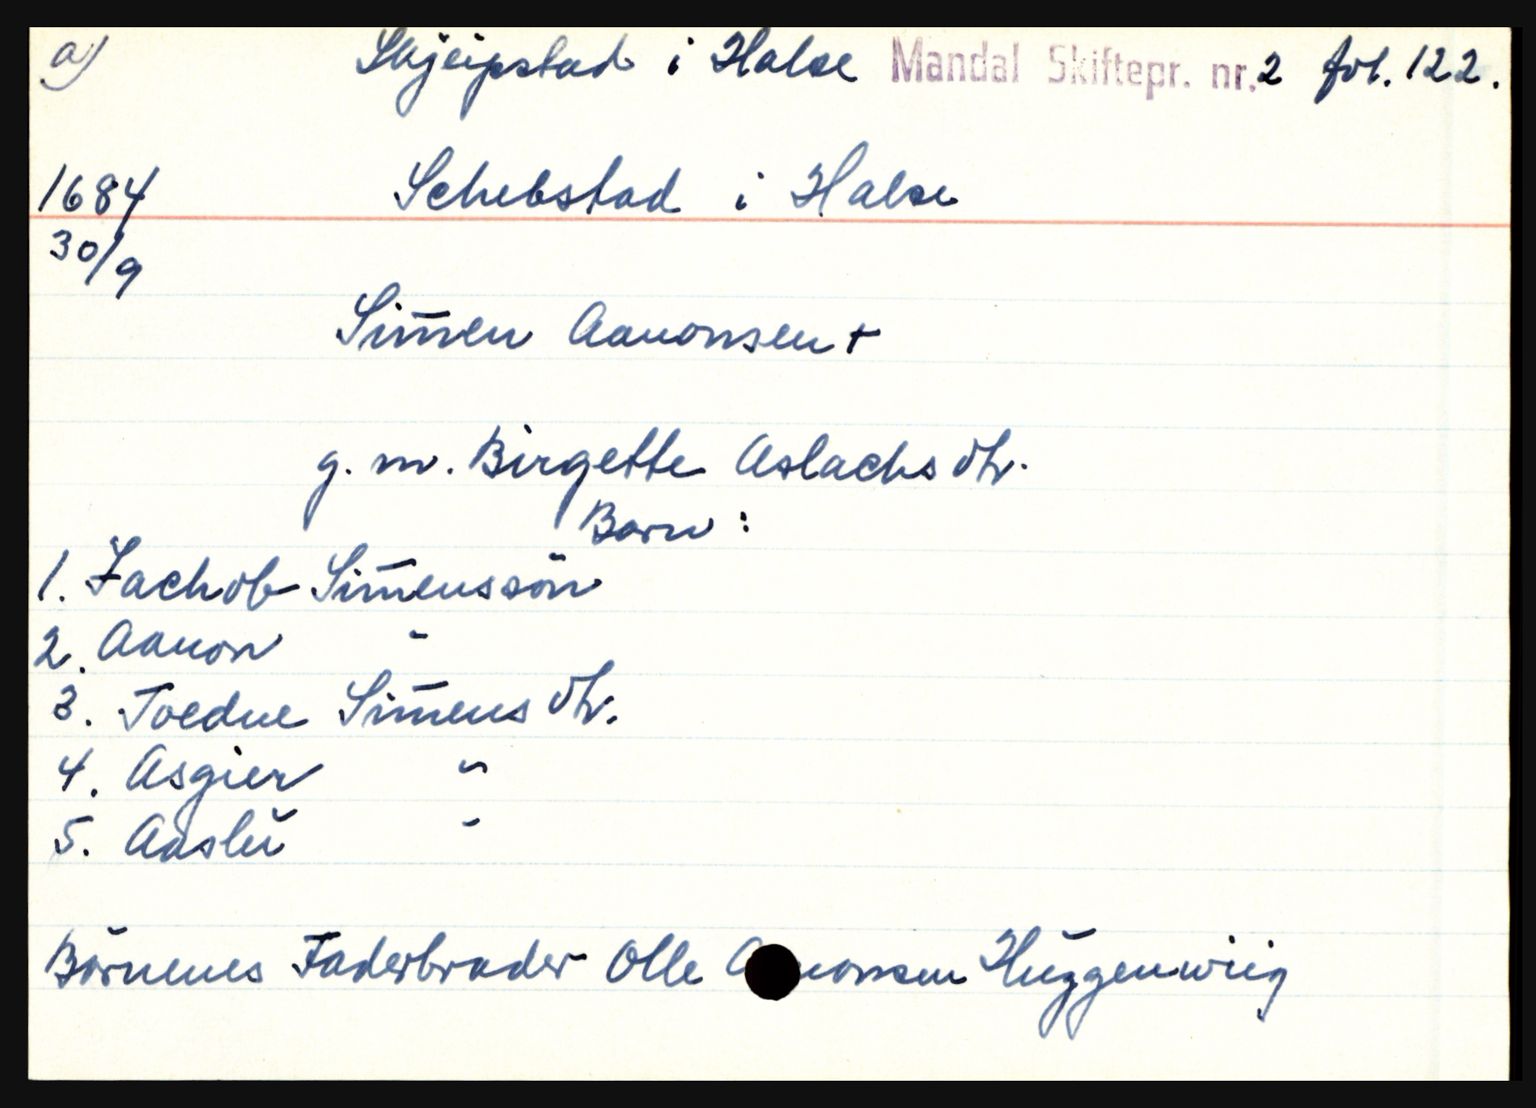 a) Skjeipstad i Halse Mandal Skiftepr. nr. 2 fol. 122.
1684 Schebstad i Halse
30/9
Sim̄en Aanonsen +
g. m. Birgette Aslachs dtr.
Barn :
1. Jachob Sim̄enssön
2. Aanon -
3. Toedne Sim̄ens dtr.
4. Asgier "
5. Aaslŭ -
Börnenes Faderbroder Olle A nonsen Hŭggenwiig